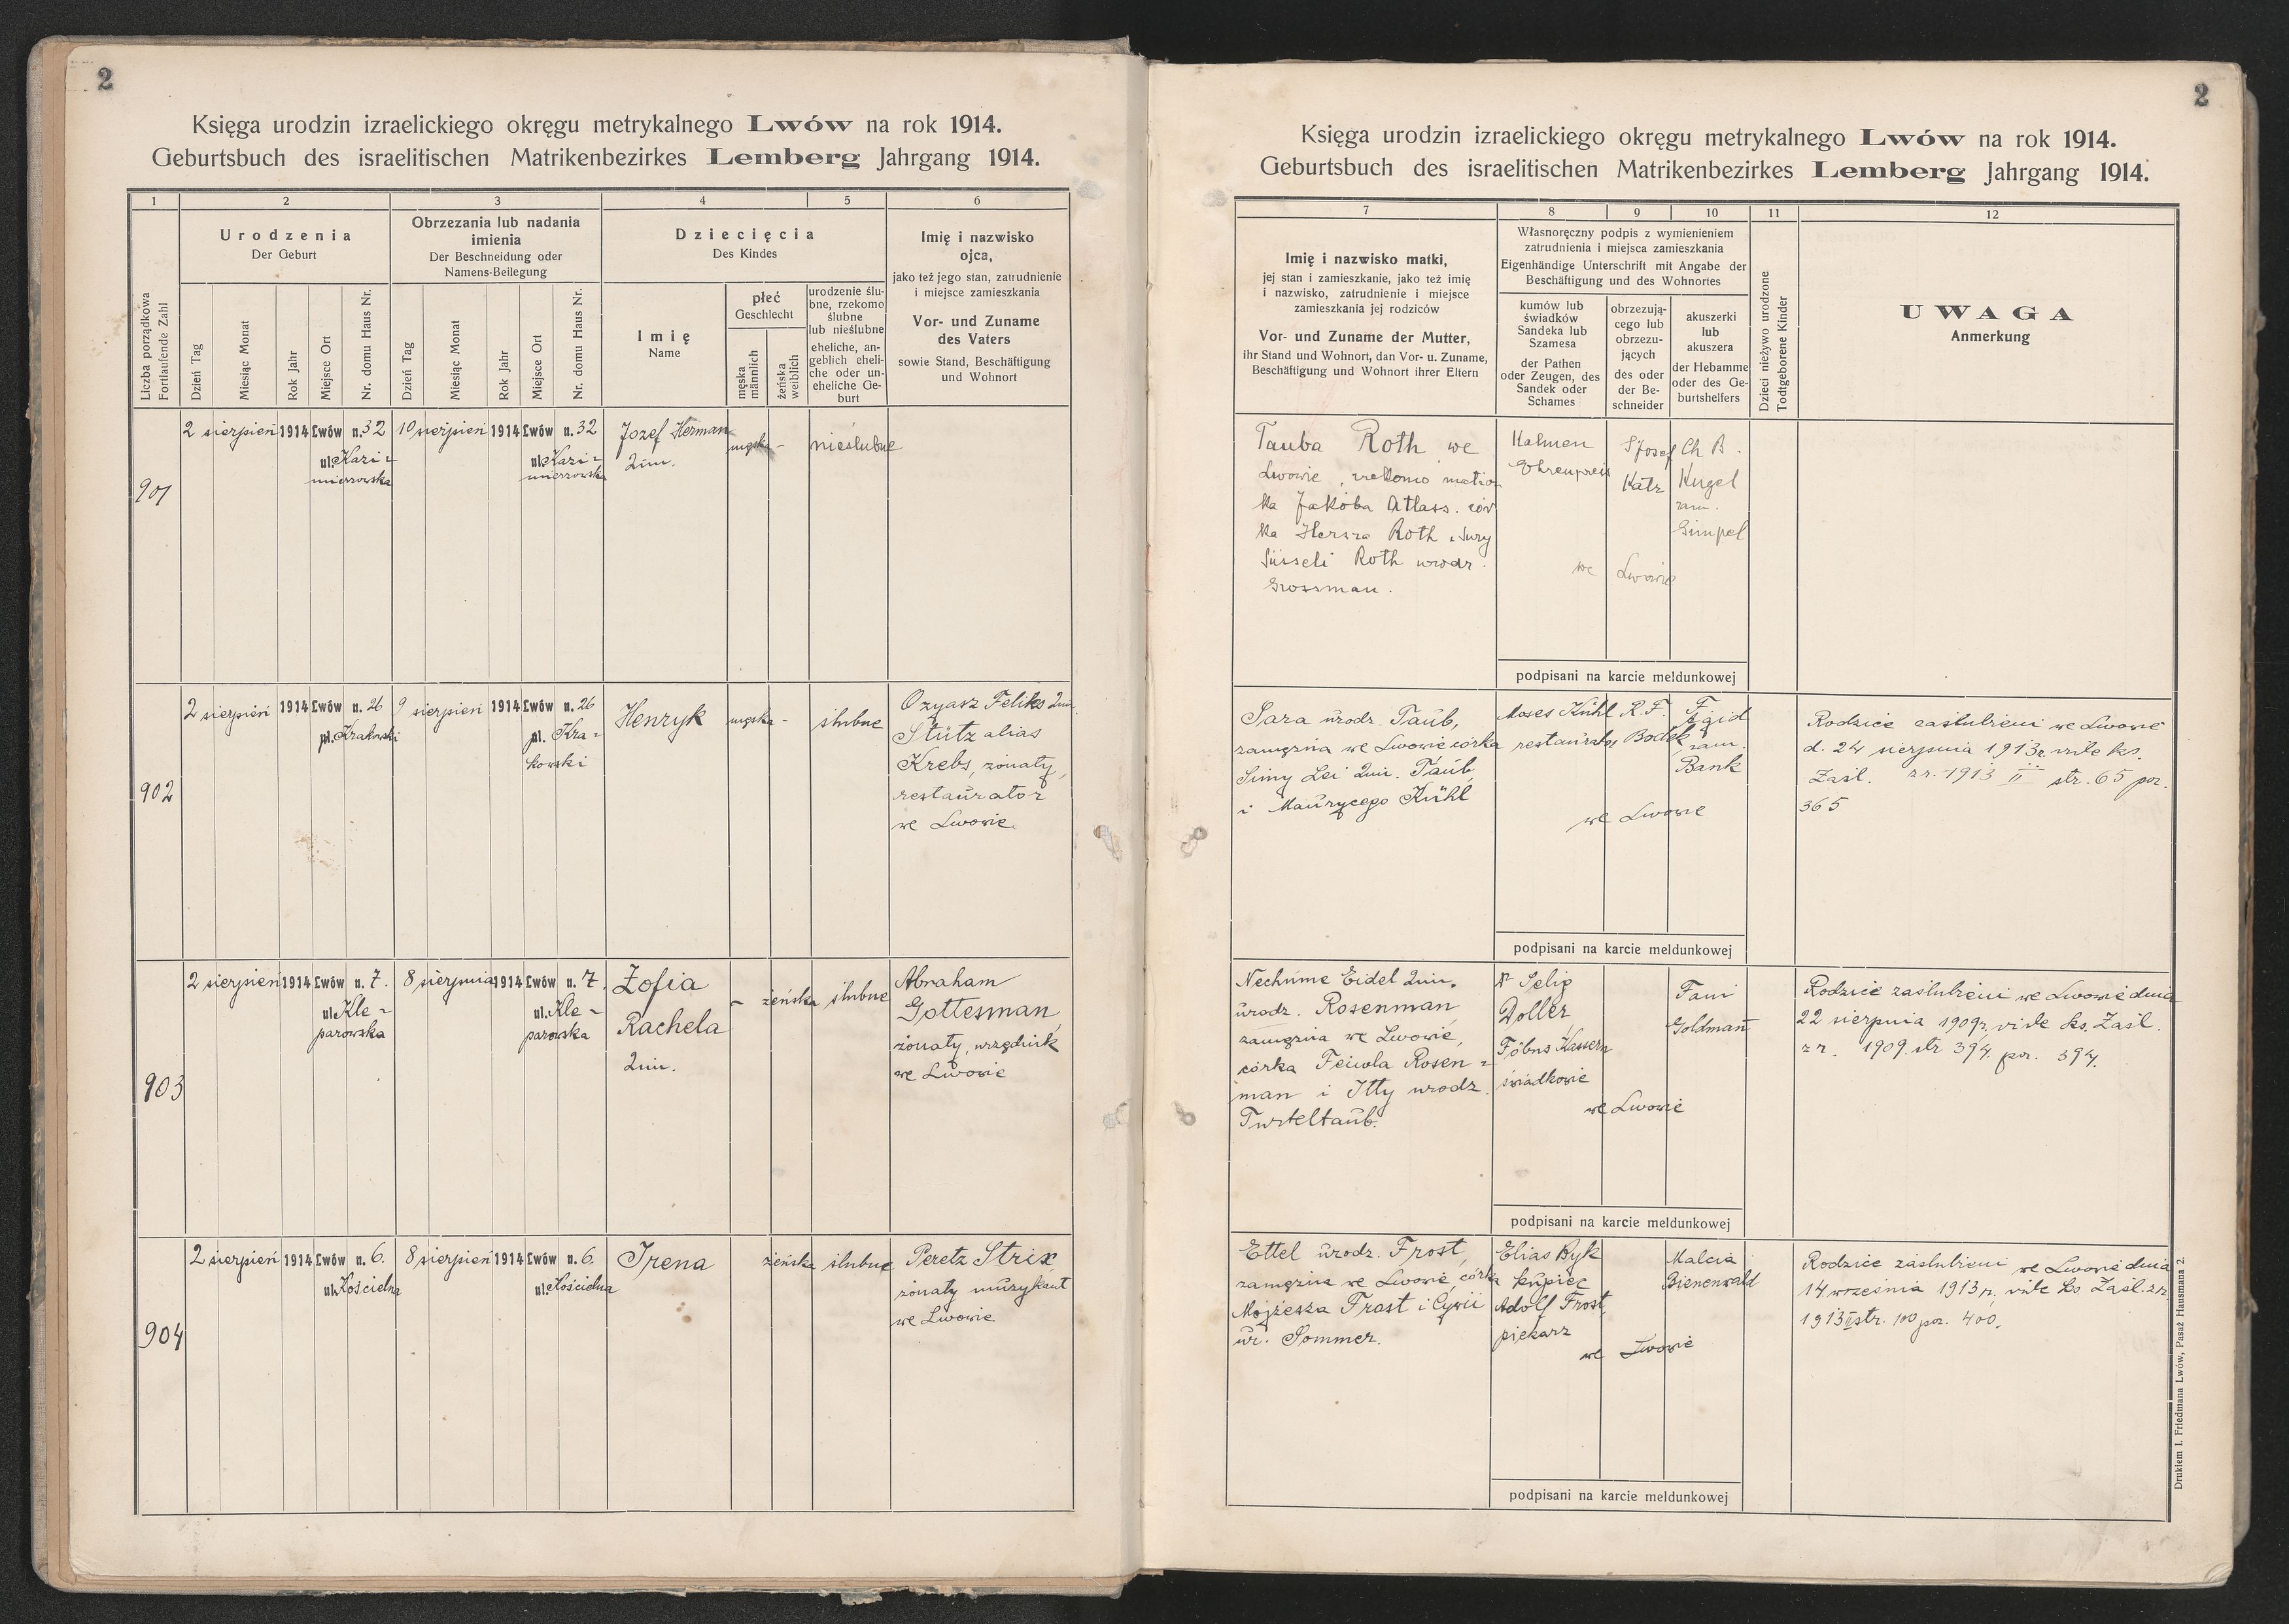 2
Księga urodzin izraelickiego okręgu metrykalnego Lwów na rok 1914.
Geburtsbuch des israelitischen Matrikenbezirkes Lemberg Jahrgang 1914.
1 2 3 4 5 6
Liczba porządkowa
Fortlaufende Zahl
Urodzenia
Der Geburt
Dzień Tag
Miesiąc Monat
Rok Jahr
Miejsce Ort
Nr. domu Haus Nr.
Obrzezania lub nadania
imienia
Der Beschneidung oder
Namens-Beilegung
Dzień Tag
Miesiąc Monat
Rok Jahr
Miejsce Ort
Nr. domu Haus Nr.
Dziecięcia
Des Kindes
Imię
Name
płeć
Geschlecht
męska
männlich
żeńska
weiblich
urodzenie ślu-
bne, rzekomo
ślubne
lub nieślubne
eheliche, an-
geblich eheli-
che oder un-
eheliche Ge-
burt
Imię i nazwisko
ojca,
jako też jego stan, zatrudnienie
i miejsce zamieszkania
Vor- und Zuname
des Vaters
sowie Stand, Beschäftigung
und Wohnort
901
2 sierpień 1914 Lwów n. 32
ul. Kazi-
mierzowska
10 sierpień 1914 Lwów n. 32
ul. Kazi-
mierzowska
Jozef Herman
2im.
męska -
nieślubne
902
2 sierpień 1914 Lwów n. 26
pl. Krakowski
9 sierpień 1914 Lwów n. 26
pl. Kra-
kowski
Henryk
męska -
ślubne
Ozyasz Feliks 2im.
Stütz alias
Krebs, żonaty,
restaurator
we Lwowie.
903
2 sierpień 1914 Lwów n. 7.
ul. Kle-
parowska
8 sierpnia 1914 Lwów n. 7.
ul. Kle-
parowska
Zofia
Rachela
2im.
- żeńska
ślubne
Abraham
Gottesman,
żonaty, urzędnik
we Lwowie
904
2 sierpień 1914 Lwów n. 6.
ul. Kościelna
8 sierpień 1914 Lwów n. 6.
ul. Kościelna
Irena
żeńska
ślubne
Peretz Strix,
żonaty muzykant
we Lwowie
2
Księga urodzin izraelickiego okręgu metrykalnego Lwów na rok 1914.
Geburtsbuch des israelitischen Matrikenbezirkes Lemberg Jahrgang 1914.
7 8 9 10 11 12
Imię i nazwisko matki,
jej stan i zamieszkanie, jako też imię
i nazwisko, zatrudnienie i miejsce
zamieszkania jej rodziców
Vor- und Zuname der Mutter,
ihr Stand und Wohnort, dan Vor- u. Zuname,
Beschäftigung und Wohnort ihrer Eltern
Własnoręczny podpis z wymienieniem
zatrudnienia i miejsca zamieszkania
Eigenhändige Unterschrift mit Angabe der
Beschäftigung und des Wohnortes
kumów lub
świadków
Sandeka lub
Szamesa
der Pathen
oder Zeugen, des
Sandek oder
Schames
obrzezują-
cego lub
obrzezu-
jących
des oder
der Be-
schneider
akuszerki
lub
akuszera
der Hebamme
oder des Ge-
burtshelfers
Dzieci nieżywo urodzone
Todtgeborene Kinder
UWAGA
Anmerkung
Tauba Roth we
Lwowie, rzekomo małżon
ka Jakóba Atlass. cór
ka Hersza Roth i Sury
Süsseli Roth urodz.
Grossman.
Kalmen
Ehrenpreis
Josef
Katz
Ch B.
Kugel
zam.
Gimpel
we Lwowie
podpisani na karcie meldunkowej
Sara urodz. Taub,
zamężna we Lwowie córka
Simy Lei 2im. Taub
i Maurycego Kühl
Moses Kühl
restaurator
R. F.
Bodek
F.
Agid
zam.
Bank
we Lwowie
podpisani na karcie meldunkowej
Rodzice zaślubieni we Lwowie
d. 24 sierpnia 1913r. vide ks.
Zaśl. zr. 1913 II str. 65 poz.
365
Nechume Eidel 2im.
urodz. Rosenman
zamężna we Lwowie,
córka Feiwla Rosen-
man i Itty urodz.
Turteltaub.
Dr Selig
Doller
Föbus Kassern
świadkowie
Fani
Goldman
we Lwowie
podpisani na karcie meldunkowej
Rodzice zaślubieni we Lwowie dnia
22 sierpnia 1909r. vide ks. Zaśl.
zr. 1909. str 394. poz. 394.
Ettel urodz. Frost,
zamężna we Lwowie, córka
Mojżesza Frost i Cywii
ur. Sommer.
Elias Byk
kupiec
Adolf Frost,
piekarz
Malcia
Bienenwald
we Lwowie
podpisani na karcie meldunkowej
Rodzice zaślubieni we Lwowie dnia
14 września 1913r. vide ks. Zaśl. zr.
1913 II str. 100 poz. 400.
Drukiem I. Friedmana Lwów, Pasaż Hausmana 2.